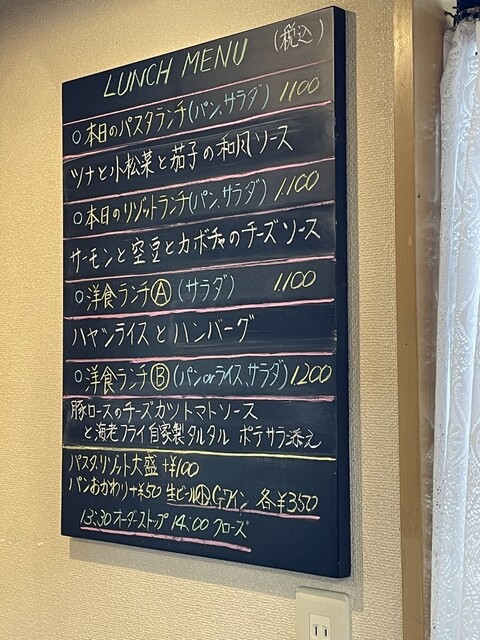 LUNCH MENU (税込)
○本日のパスタランチ(パン、サラダ) 1100
ツナと小松菜と茄子の和風ソース
○本日のリゾットランチ(パン、サラダ) 1,100
サーモンと空豆とカボチャのチーズソース
○洋食ランチⒶ(サラダ) 1,100
ハヤシライスとハンバーグ
○洋食ランチⒷ(パンorライス、サラダ) 1,200
豚ロースのチーズカツトマトソース
と海老フライ自家製タルタル ポテサラ添え
パスタ、リゾット大盛 +¥100
パンおかわり+¥50 生ビール㊙、Gワイン 各¥350
13:30 オーダーストップ 14:00 クローズ